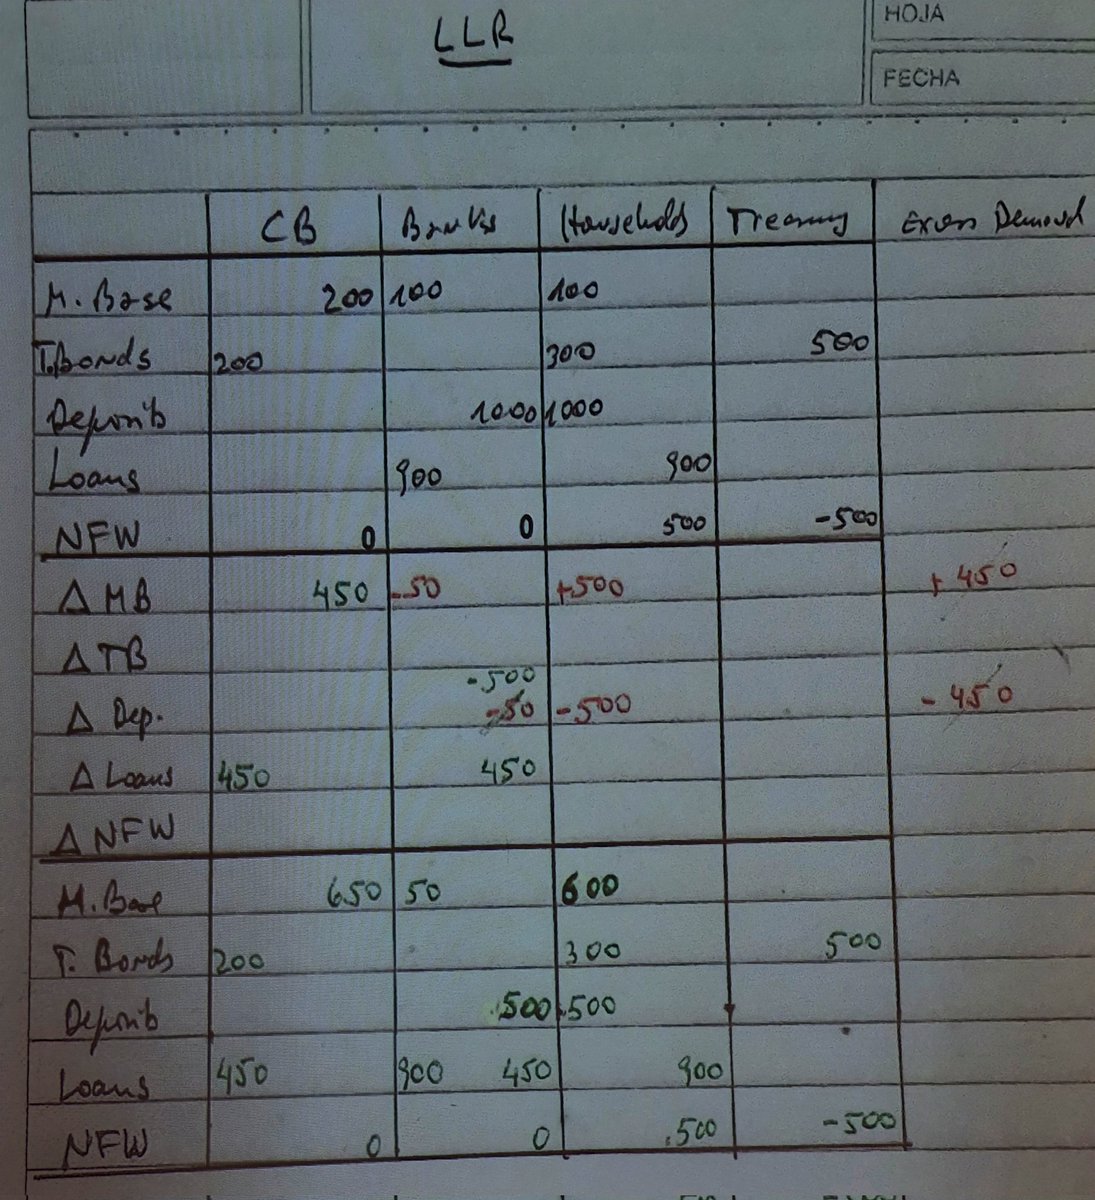 LLR
HOJA
FECHA
CB Banks Households Treasury Excess Demand
M. Base 200 100 100
T. Bonds 200 300 500
Deposits 1000 1000
Loans 900 900
NFW 0 0 500 -500
Δ MB 450 -50 +500 + 450
Δ TB
-500
Δ Dep. -50 -500 - 450
Δ Loans 450 450
Δ NFW
M. Base 650 50 600
T. Bonds 200 300 500
Deposits 500 500
Loans 450 900 450 900
NFW 0 0 500 -500